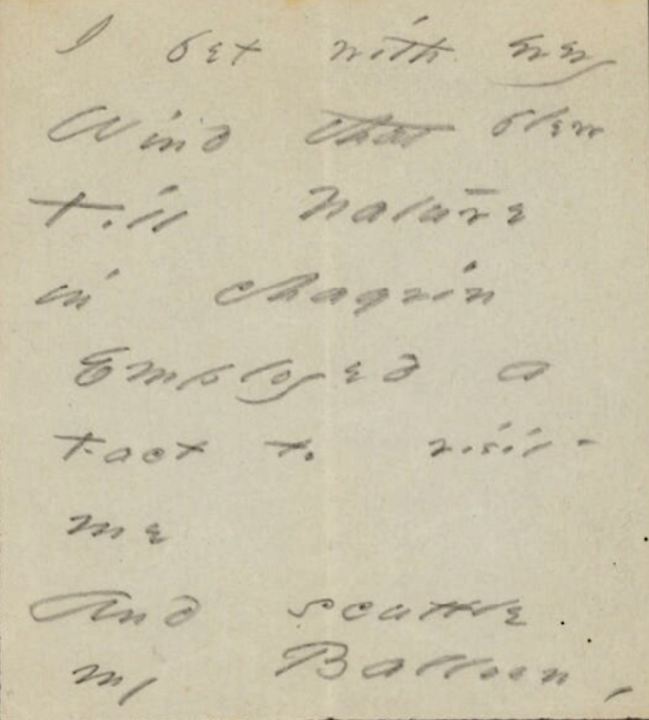 I bet with every
Wind that blew
till Nature
in chagrin
Employed a
Fact to visit
me
And scuttle
my Balloon,